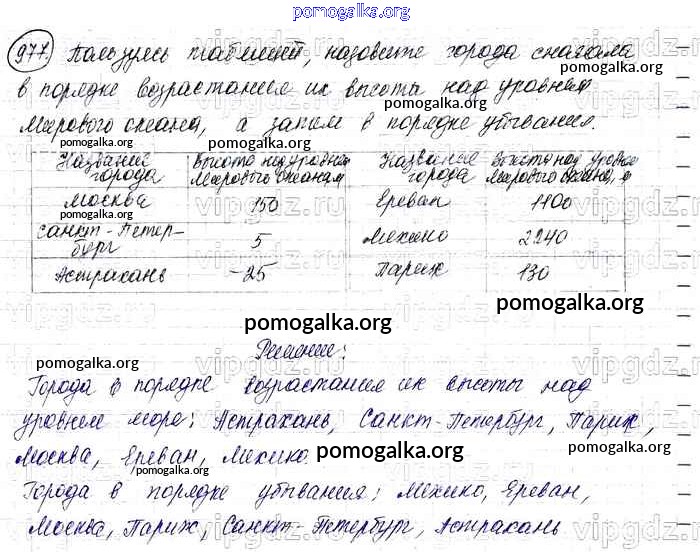 pomogalka.org
977. Пользуясь таблицей, назовите города сначала
pomogalka.org
в порядке возрастания их высоты над уровнем
pomogalka.org pomogalka.org
Мирового океана, а затем в порядке убывания.
Название города | Высота над уровнем Мирового океана, м | Название города | Высота над уровнем Мирового океана, м
Москва | 150 | Ереван | 1100
Санкт-Петербург | 5 | Мехико | 2240
Астрахань | -25 | Париж | 130
pomogalka.org
pomogalka.org
Решение:
pomogalka.org
Города в порядке возрастания их высоты над
уровнем моря: Астрахань, Санкт-Петербург, Париж,
pomogalka.org pomogalka.org
Москва, Ереван, Мехико.
pomogalka.org
Города в порядке убывания: Мехико, Ереван,
Москва, Париж, Санкт-Петербург, Астрахань
pomogalka.org